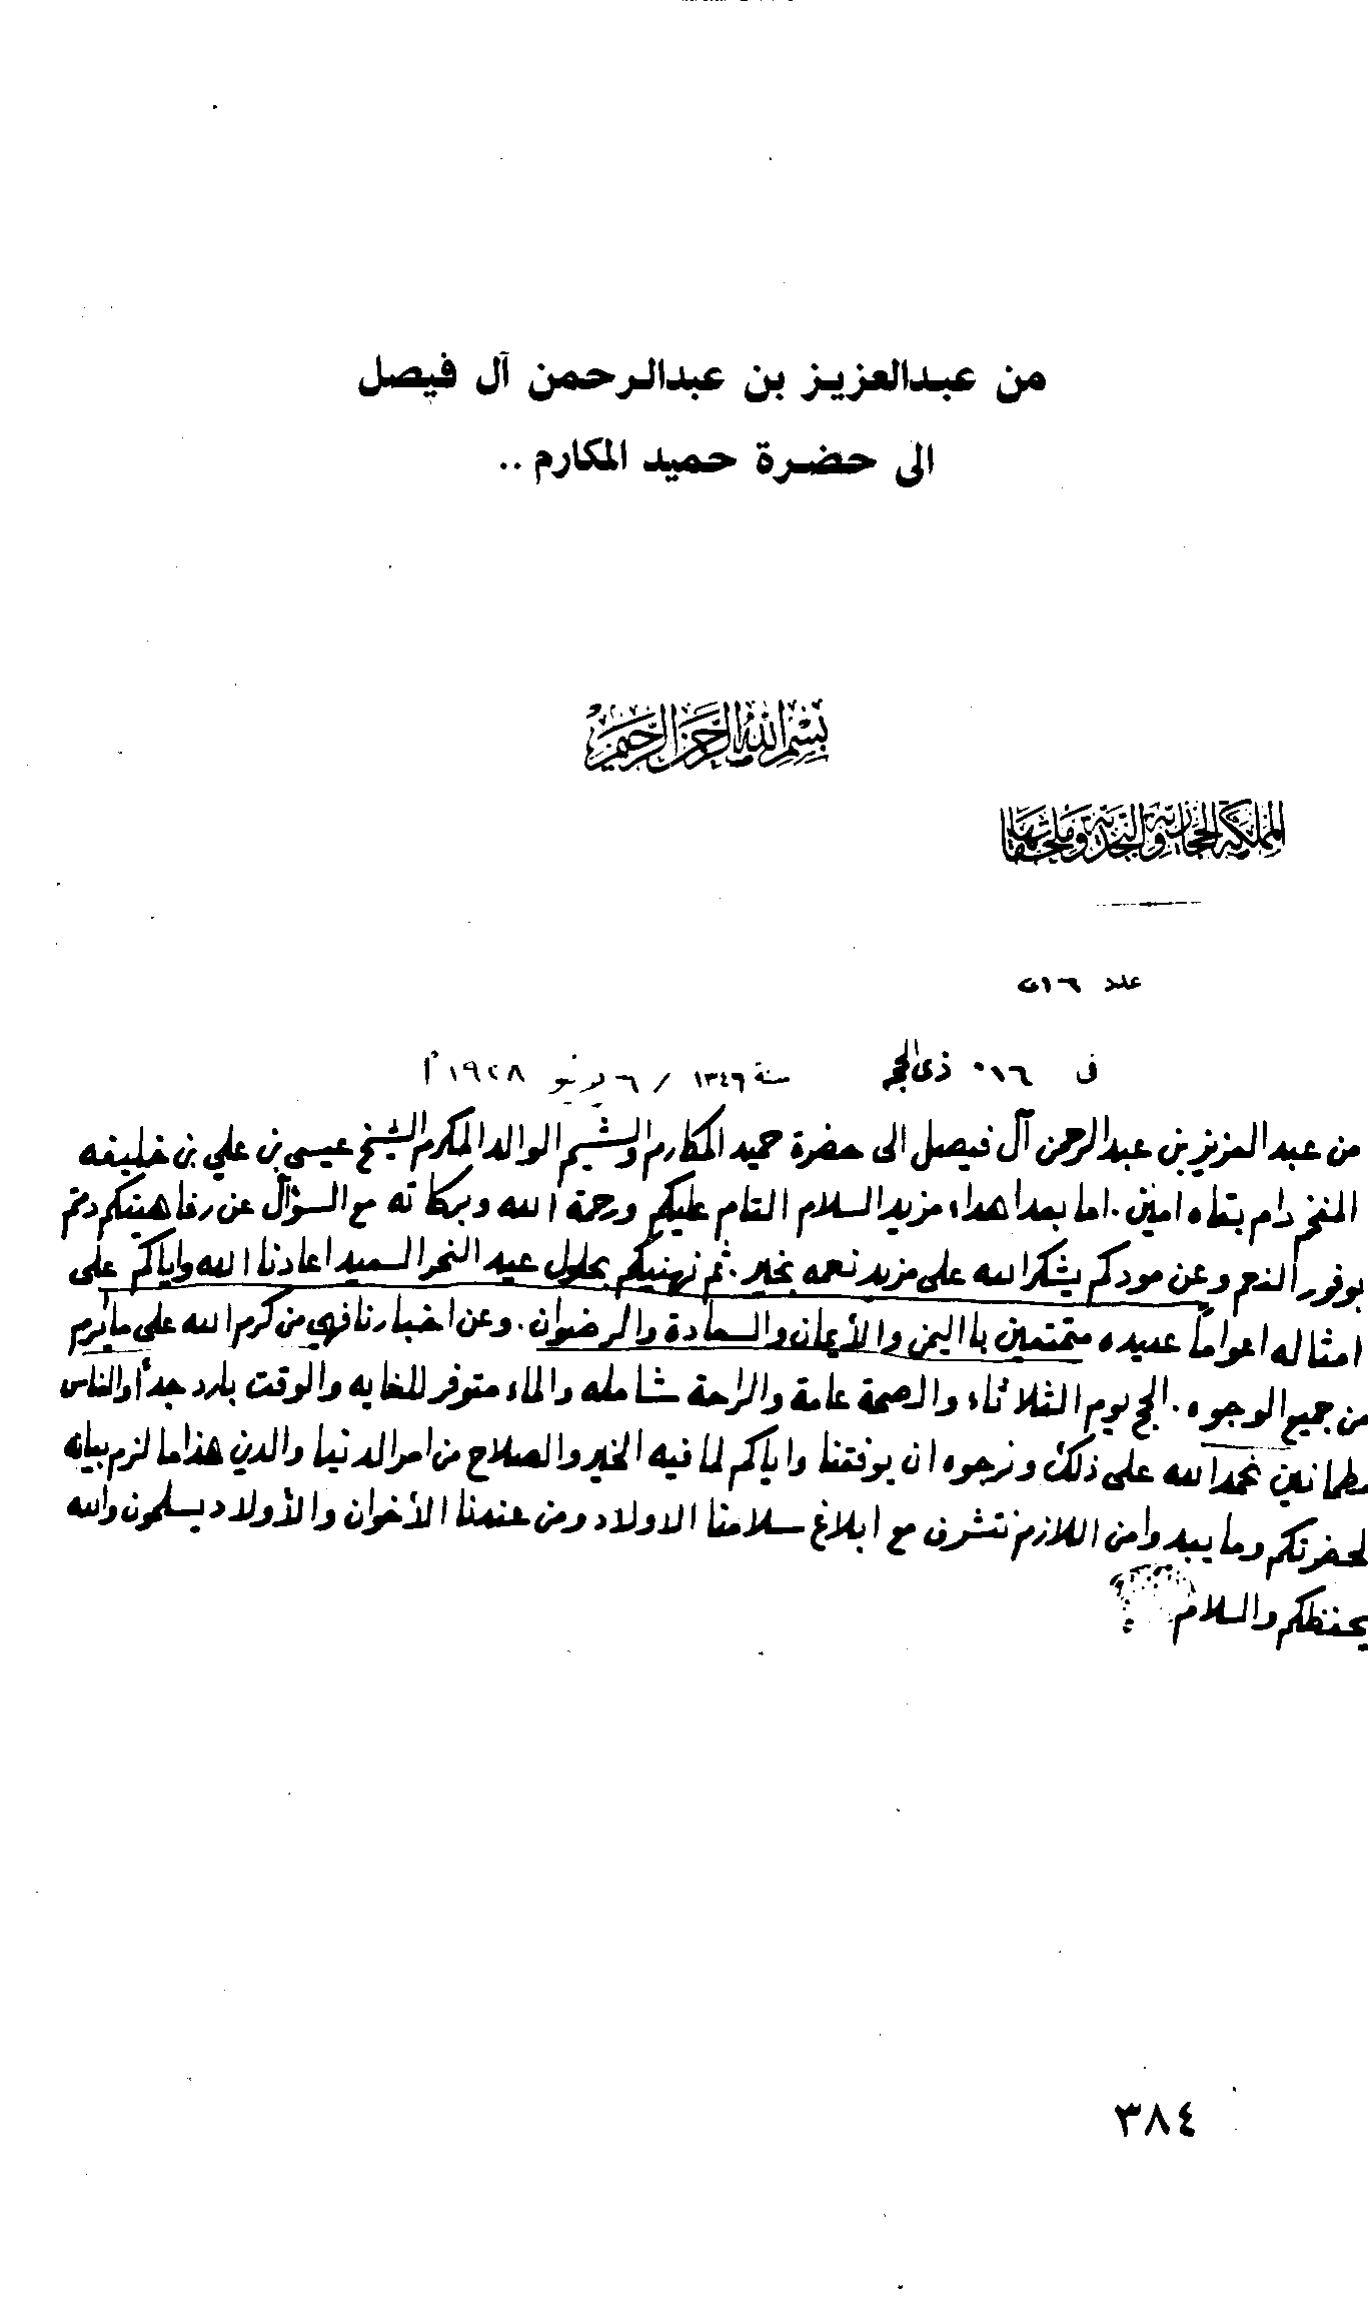 من عبدالعزيز بن عبدالرحمن آل فيصل
الى حضرة حميد المكارم ..
بسم الله الرحمن الرحيم
المملكة الحجازية والنجدية وملحقاتها
عدد ٥١٦
فى ١٦ ذى الحجه سنة ١٣٤٦ / ٦ يونيو ١٩٢٨م
من عبد العزيز بن عبد الرحمن آل فيصل الى حضرة حميد المكارم والشيم الوالد المكرم الشيخ عيسى بن علي بن خليفه
المفخم دام بقاه امين . اما بعد اهداء مزيد السلام التام عليكم ورحمة الله وبركاته مع السؤآل عن رفاهيتكم دمتم
بوفور النعم وعن مودكم يشكر الله على مزيد نعمه بخير . ثم نهنيكم بحلول عيد النحر السعيد اعادنا الله واياكم على
امثاله اعواماً عديده متمتعين بااليمن والأيمان والسعادة والرضوان . وعن اخبارنا فهي من كرم الله على مايرم
من جميع الوجوه . الحج يوم الثلاثاء والصحة عامة والراحة شامله والماء متوفر للغايه والوقت بارد جداً والناس
مطمانين نحمد الله على ذلك ونرجوه ان يوفقنا واياكم لما فيه الخير والصلاح من امر الدنيا والدين هذا ما لزم بيانه
لحضرتكم وما يبدوا من اللازم نتشرف مع ابلاغ سلامنا الاولاد ومن عندنا الأخوان والأولاد يسلمون والله
يحفظكم والسلام
٣٨٤